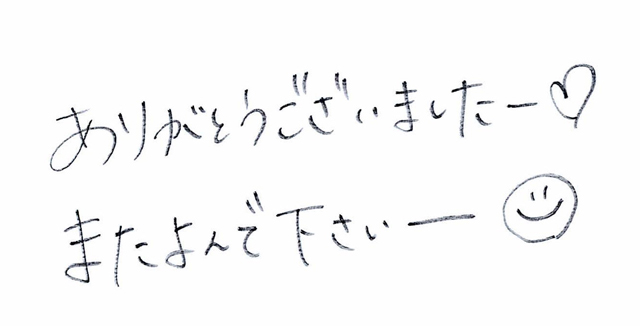 ありがとうございましたー♡
またよんで下さいー☺